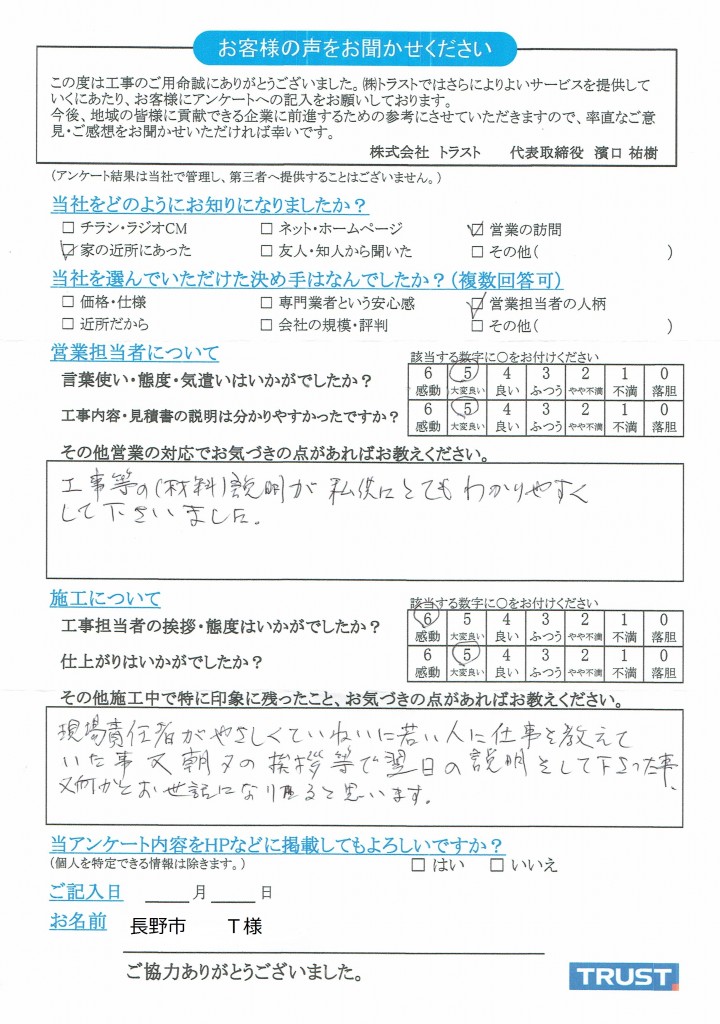 お客様の声をお聞かせください
この度は工事のご用命誠にありがとうございました。㈱トラストではさらによりよいサービスを提供して
いくにあたり、お客様にアンケートへの記入をお願いしております。
今後、地域の皆様に貢献できる企業に前進するための参考にさせていただきますので、率直なご意
見・ご感想をお聞かせいただければ幸いです。
株式会社 トラスト 代表取締役 濱口 祐樹
(アンケート結果は当社で管理し、第三者へ提供することはございません。)
当社をどのようにお知りになりましたか？
☐ チラシ・ラジオCM ☐ ネット・ホームページ ☑ 営業の訪問
☑ 家の近所にあった ☐ 友人・知人から聞いた ☐ その他( )
当社を選んでいただけた決め手はなんでしたか？(複数回答可)
☐ 価格・仕様 ☐ 専門業者という安心感 ☑ 営業担当者の人柄
☐ 近所だから ☐ 会社の規模・評判 ☐ その他( )
営業担当者について 該当する数字に〇をお付けください
言葉使い・態度・気遣いはいかがでしたか？ 6 5 4 3 2 1 0
感動 大変良い 良い ふつう やや不満 不満 落胆
工事内容・見積書の説明は分かりやすかったですか？ 6 5 4 3 2 1 0
感動 大変良い 良い ふつう やや不満 不満 落胆
その他営業の対応でお気づきの点があればお教えください。
工事等の(材料)説明が私供にとてもわかりやすく
して下さいました。
施工について 該当する数字に〇をお付けください
工事担当者の挨拶・態度はいかがでしたか？ 6 5 4 3 2 1 0
感動 大変良い 良い ふつう やや不満 不満 落胆
仕上がりはいかがでしたか？ 6 5 4 3 2 1 0
感動 大変良い 良い ふつう やや不満 不満 落胆
その他施工中で特に印象に残ったこと、お気づきの点があればお教えください。
現場責任者がやさしくていねいに若い人に仕事を教えて
いた事又朝夕の挨拶等で翌日の説明をして下さった事、
又何かとお世話になり居ると思います。
当アンケート内容をHPなどに掲載してもよろしいですか？
(個人を特定できる情報は除きます。) ☐ はい ☐ いいえ
ご記入日 ___月 ___日
お名前 長野市 T様
ご協力ありがとうございました。
TRUST